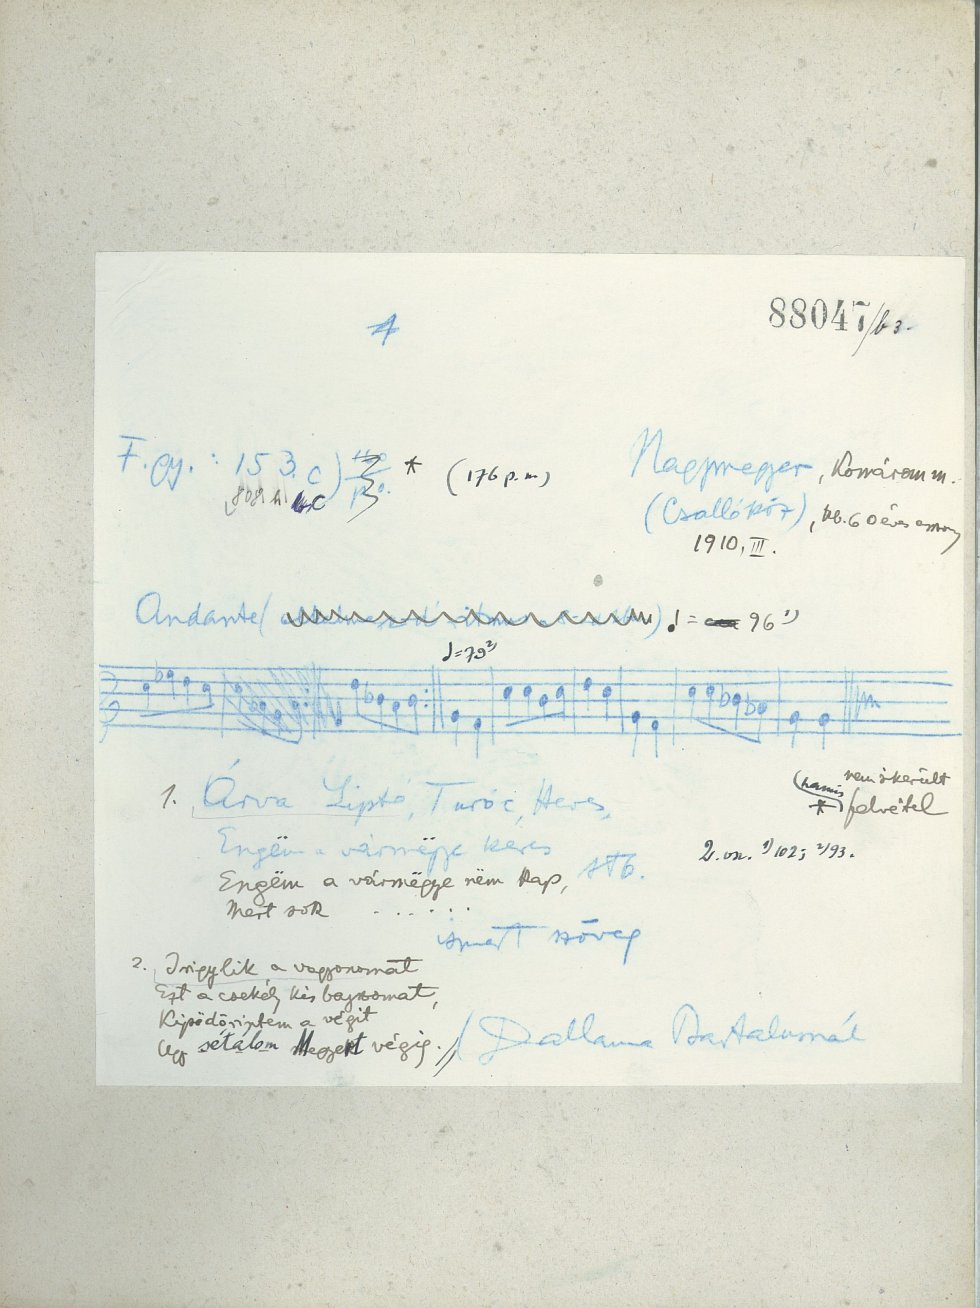 88047/b 3.
4
F. gy. : 153 c) * (176 p. m)
Nagymegyer, Komárom m.
(Csallóköz), kb. 60 éves asszony
1910, III.
Andante ( ) ♩ = 96 ¹)
♩=79²)
1. Árva Liptó, Turóc, Heves,
Engëm a vármëgye keres
Engëm a vármëgye nëm kap, stb.
Mert sok . . . . . .
ismert szöveg
(hamis) nem sikerült
* felvétel
2. vsz. ¹) 102; ²) 93.
2. Irigylik a vagyonomat
Ezt a csekély kis bajszomat,
Kipödörintem a végit
Ugy sétalom Megyert végig.
/ Dallama Bartalusnál